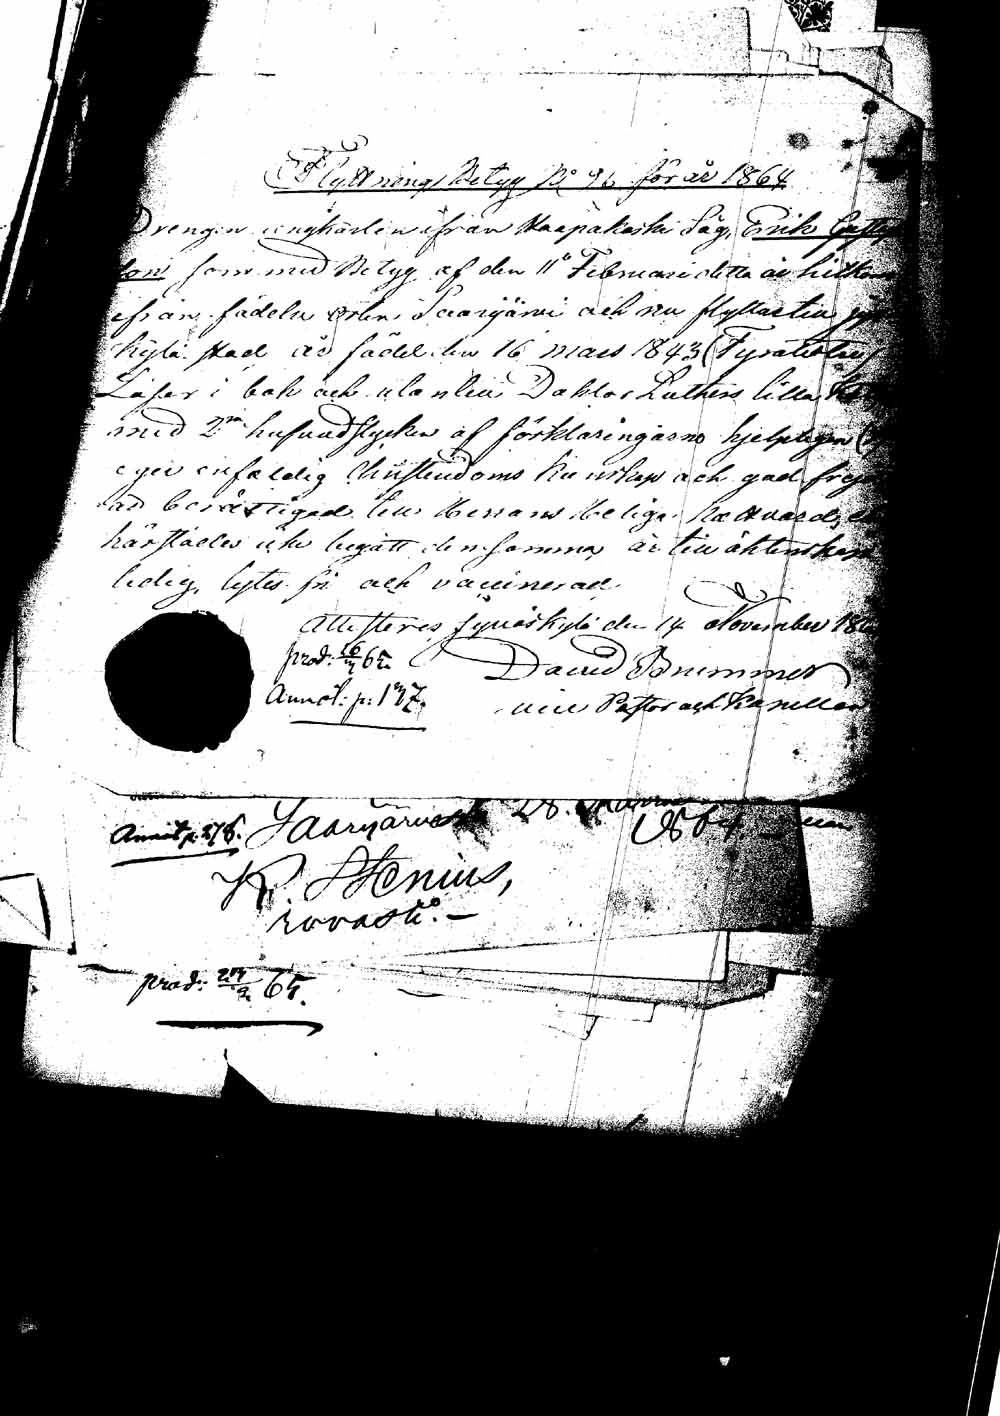 Flyttnings Betyg No 96 för år 1864
Drengen ungkarlen ifrån Haapakoski Såg, Erik Gustafs
son som med Betyg af den 11 Februari detta år hitkom
ifrån födelse orten Saarijärvi och nu flyttar till
kylä Stad är född den 16 mars 1843 (Fyratiotre)
Läser i bok och utan till Doktor Luthers lilla
med hufvudstycken af förklaringarne hjelpligen
eger enfaldig Christendoms kunskap och god frejd
är berättigad till Herrans Heliga Nattvard,
härstädes icke begått densamma, är till äktenskap
ledig, lytes fri och vaccinerad.
Attesteras Jyväskylä den 14 November 18
prod: 65. David Brummer
Annot: p: 137. vice Pastor och Kapellan
Annot p. 276. Saarijärvi 28. 1864
K. Stenius,
rovasti. —
prod: 65.